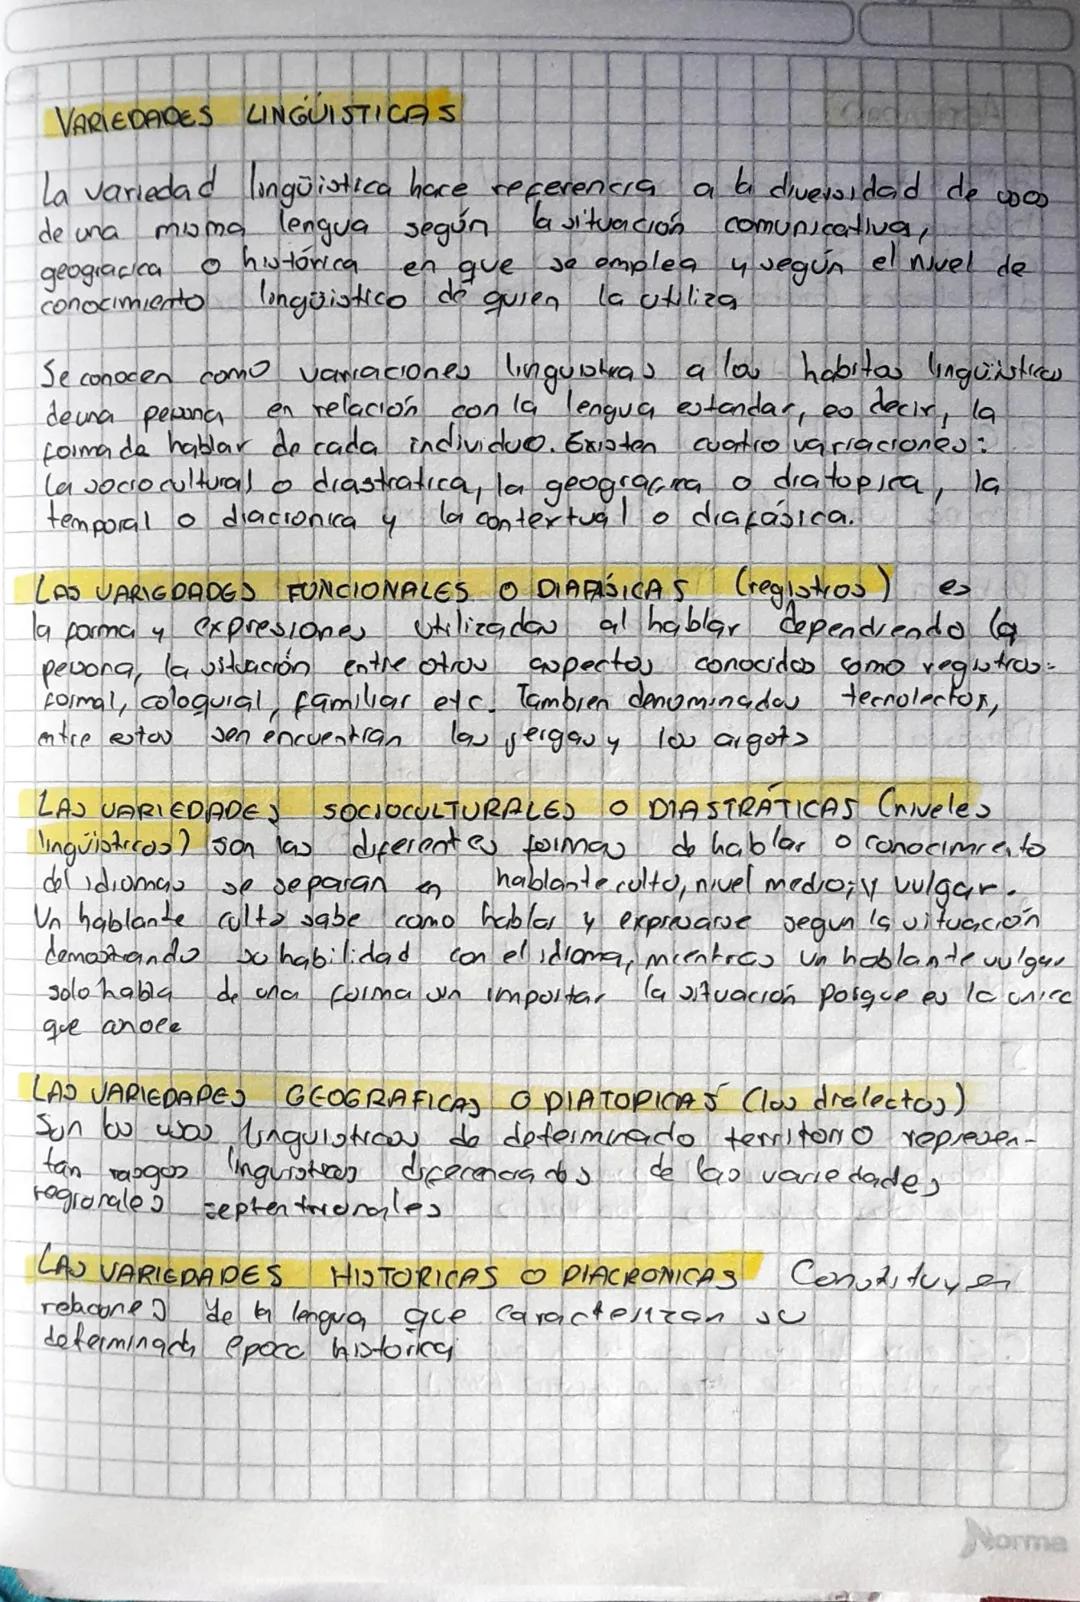 VARIEDADES LINGÜISTICAS
La variedad lingüistica hace referencia a la diversidad de usos
de una misma lengua según la situación comunicativa,
geografica o histórica en que se emplea y según el nivel de
conocimiento lingüistico de quien la utiliza
Se conocen como variaciones linguisticas a los habitos lingüisticos
de una persona en relación con la lengua estandar, es decir, la
forma de hablar de cada individuo. Existen cuatro variaciones:
la sociocultural o diastratica, la geografica o diatopica, la
temporal o diacronica y la contextual o diafásica.
LAS VARIEDADES FUNCIONALES O DIAFÁSICAS (registros) es
la forma y expresiones utilizadas al hablar dependiendo la
persona, la situación entre otros aspectos conocidos como registros:
formal, coloquial, familiar etc. Tambien denominados tecnolectos,
entre estos sen encuentran las jergas y los argots
LAS VARIEDADES SOCIOCULTURALES O DIASTRÁTICAS (niveles
lingüisticos) son las diferentes formas de hablar o conocimiento
del idiomas se separan en hablante culto, nivel medio; y vulgar.
Un hablante culto sabe como hablar y expresarse segun la situación
demostrando su habilidad con el idioma, mientras un hablante vulgar
solo habla de una forma sin importar la situación porque es la unica
que conoce
LAS VARIEDADES GEOGRAFICAS O DIATOPICAS (los dialectos)
Son los usos linguisticos de determinado territorio represen-
tan rasgos linguisticos diferenciados de las variedades
regionales septentrionales
LAS VARIEDADES HISTORICAS O DIACRONICAS Constituyen
relaciones de la lengua que caracterizan su
determinada epoca historica
Norma